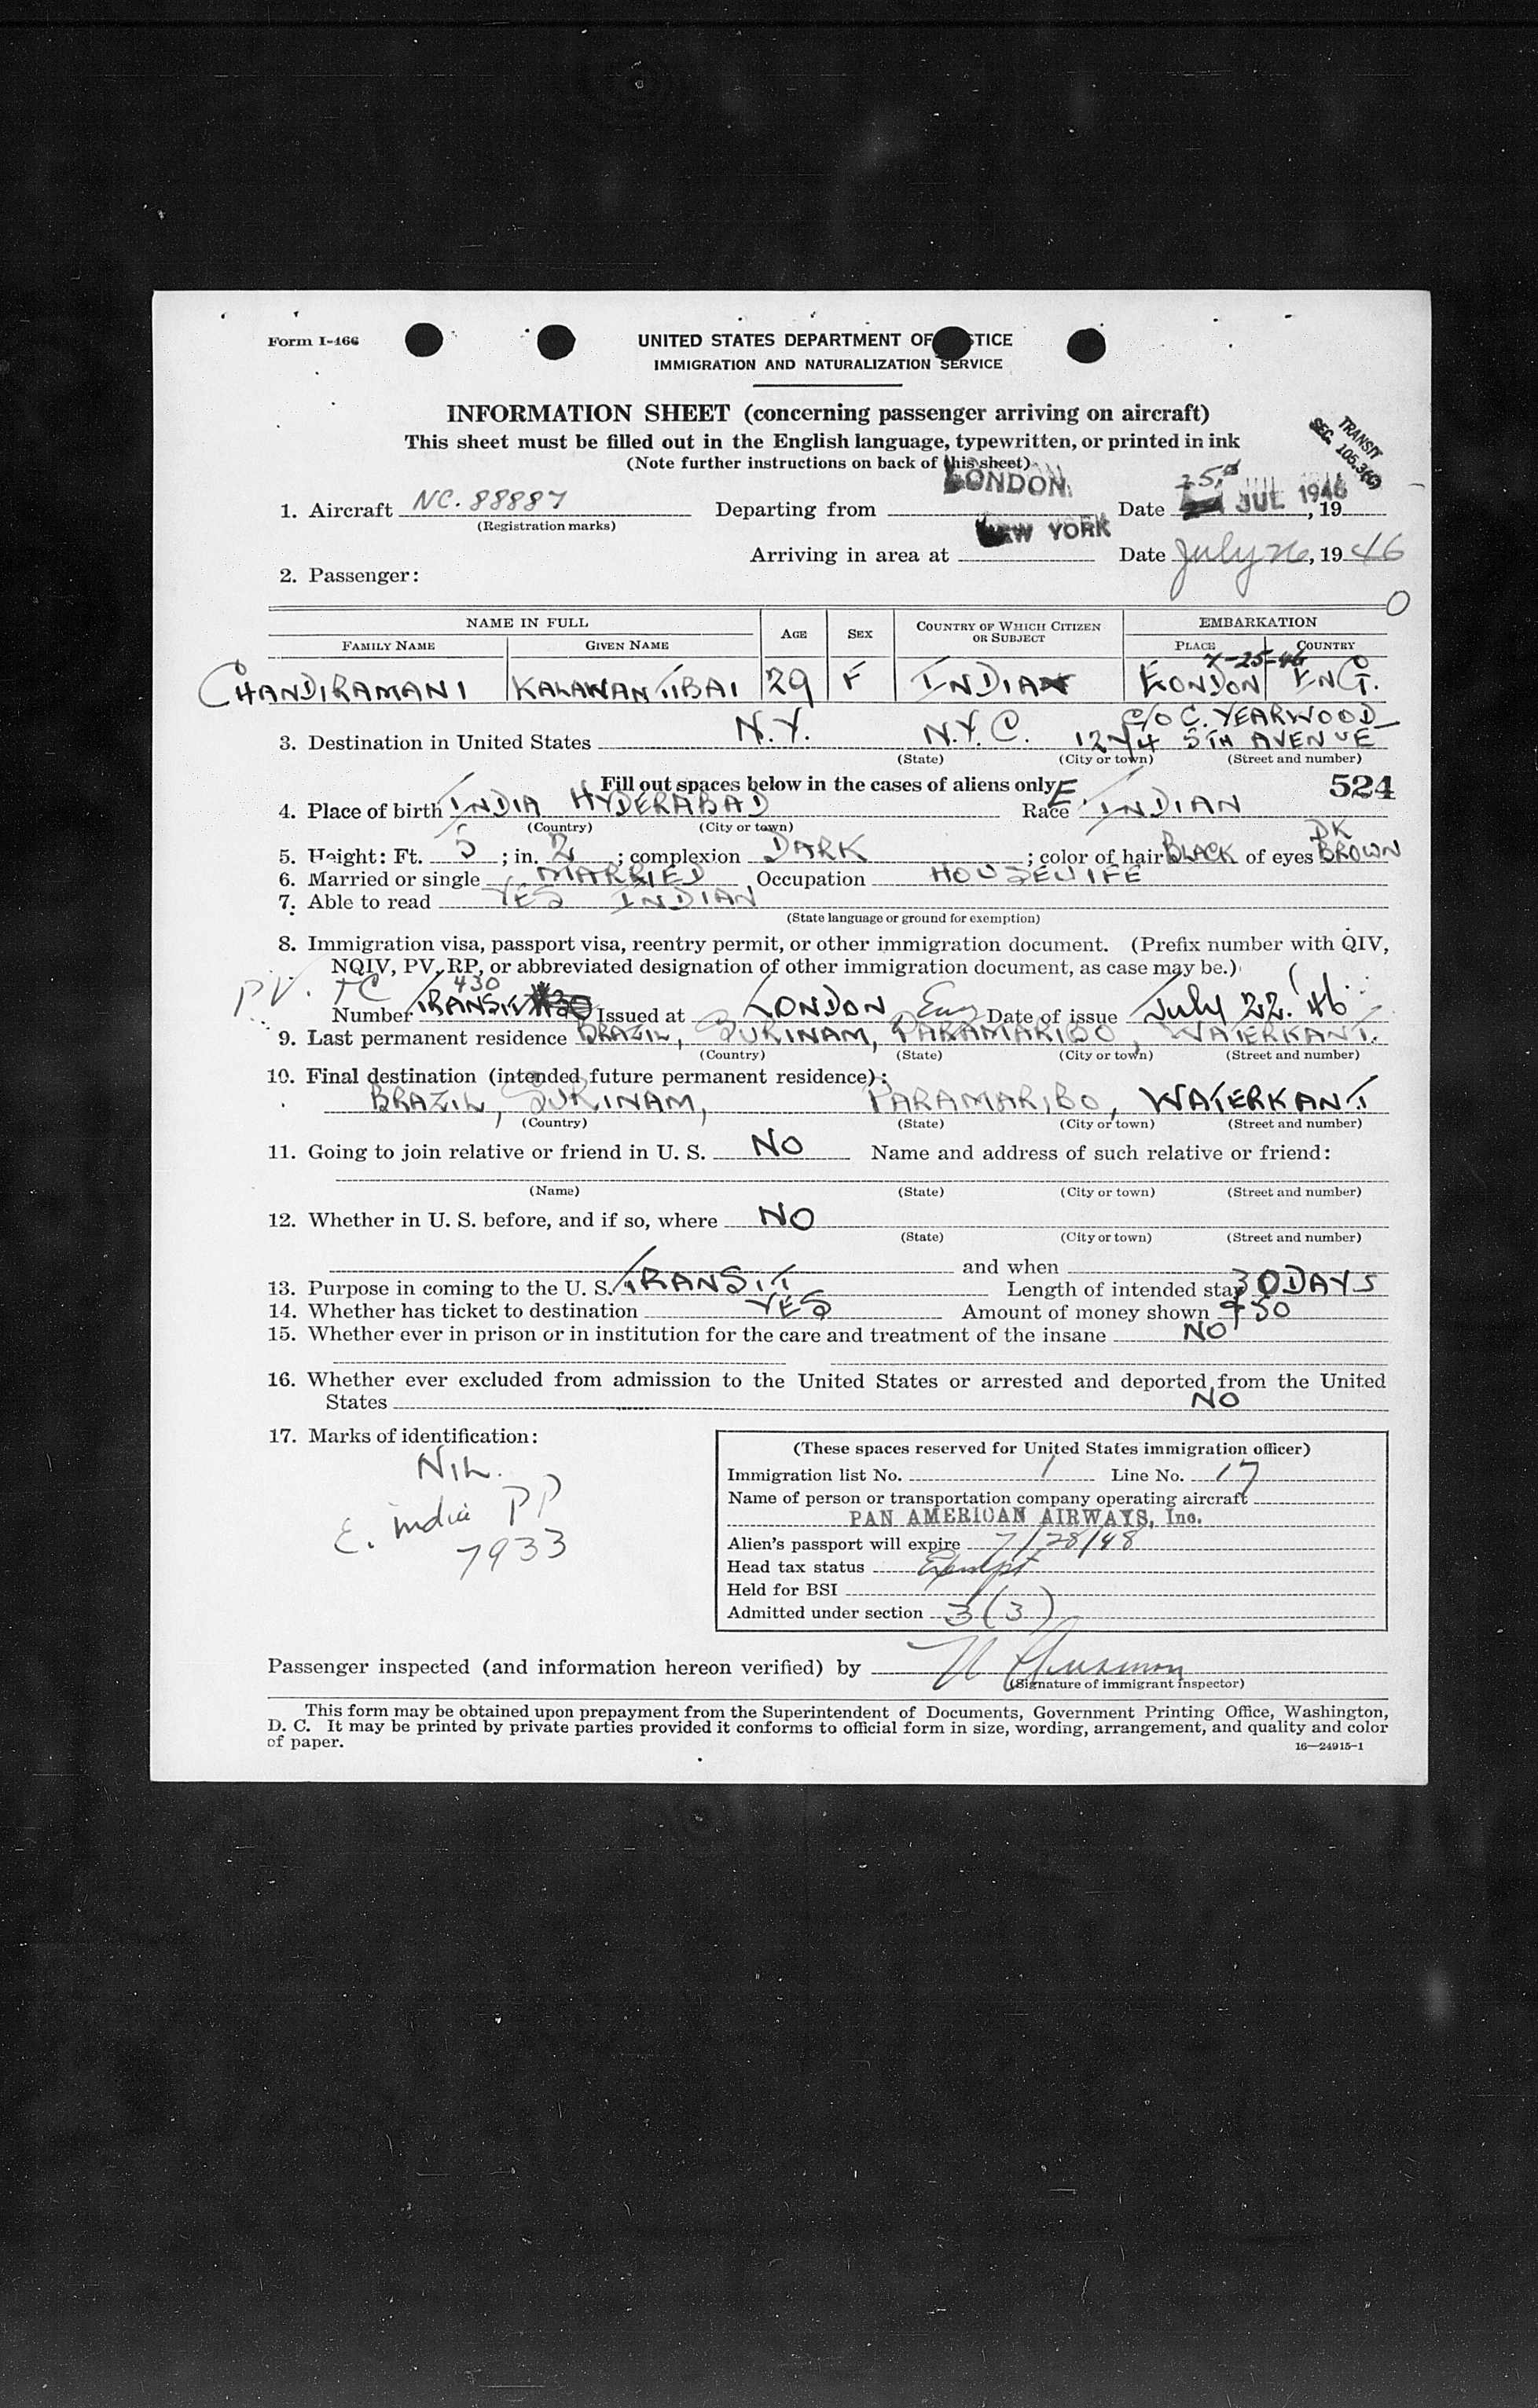 Form I-466
UNITED STATES DEPARTMENT OF STICE
IMMIGRATION AND NATURALIZATION SERVICE
INFORMATION SHEET (concerning passenger arriving on aircraft)
This sheet must be filled out in the English language, typewritten, or printed in ink
(Note further instructions on back of this sheet)
TRANSIT
SEC. 105.3(c)
1. Aircraft NC. 88887 Departing from LONDON Date 25 JUL 1946, 19
(Registration marks)
Arriving in area at NEW YORK Date July 26, 19 46
2. Passenger:
O
NAME IN FULL AGE SEX COUNTRY OF WHICH CITIZEN OR SUBJECT EMBARKATION
FAMILY NAME GIVEN NAME PLACE COUNTRY
7-25-46
CHANDIRAMANI KALAWANTIBAI 29 F INDIA LONDON ENG.
C/O C. YEARWOOD
3. Destination in United States N.Y. N.Y.C. 1244 5TH AVENUE
(State) (City or town) (Street and number)
Fill out spaces below in the cases of aliens only 524
4. Place of birth INDIA HYDERABAD Race E. INDIAN
(Country) (City or town)
5. Height: Ft. 5; in. 2; complexion DARK; color of hair BLACK of eyes DK BROWN
6. Married or single MARRIED Occupation HOUSEWIFE
7. Able to read YES INDIAN
(State language or ground for exemption)
8. Immigration visa, passport visa, reentry permit, or other immigration document. (Prefix number with QIV,
NQIV, PV, RP, or abbreviated designation of other immigration document, as case may be.)
PV. TC 430
Number TRANSIT Issued at LONDON Eng Date of issue July 22. 46
9. Last permanent residence BRAZIL, SURINAM, PARAMARIBO, WATERKANT.
(Country) (State) (City or town) (Street and number)
10. Final destination (intended future permanent residence):
BRAZIL, SURINAM, PARAMARIBO, WATERKANT
(Country) (State) (City or town) (Street and number)
11. Going to join relative or friend in U. S. NO Name and address of such relative or friend:
(Name) (State) (City or town) (Street and number)
12. Whether in U. S. before, and if so, where NO
(State) (City or town) (Street and number)
and when
13. Purpose in coming to the U. S. TRANSIT Length of intended stay 30 DAYS
14. Whether has ticket to destination YES Amount of money shown $50
15. Whether ever in prison or in institution for the care and treatment of the insane NO
16. Whether ever excluded from admission to the United States or arrested and deported from the United
States NO
17. Marks of identification:
NIL.
E. india PP
7933
(These spaces reserved for United States immigration officer)
Immigration list No. 1 Line No. 17
Name of person or transportation company operating aircraft
PAN AMERICAN AIRWAYS, Inc.
Alien's passport will expire 7/28/48
Head tax status Exempt
Held for BSI
Admitted under section 3(3)
Passenger inspected (and information hereon verified) by
(Signature of immigrant inspector)
This form may be obtained upon prepayment from the Superintendent of Documents, Government Printing Office, Washington,
D. C. It may be printed by private parties provided it conforms to official form in size, wording, arrangement, and quality and color
of paper.
16—24915-1